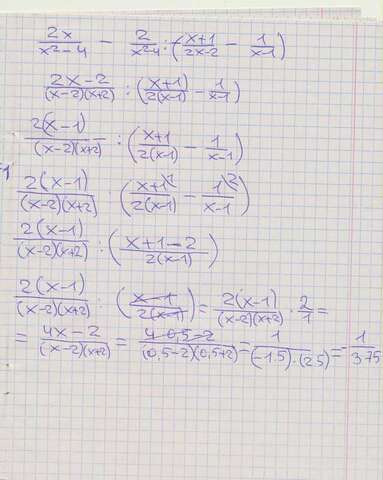 2x/(x²-4) - 2/(x²-4) : (x+1/(2x-2) - 1/(x-1))
2x-2/((x-2)(x+2)) : ((x+1)/(2(x-1)) - 1/(x-1))
2(x-1)/((x-2)(x+2)) : (x+1/(2(x-1)) - 1/(x-1))
2(x-1)/((x-2)(x+2)) : (x+1\1/(2(x-1)) - 1\2/(x-1))
2(x-1)/((x-2)(x+2)) : (x+1-2/(2(x-1)))
2(x-1)/((x-2)(x+2)) : (x-1/(2(x-1))) = 2(x-1)/((x-2)(x+2)) · 2/1 =
= 4x-2/((x-2)(x+2)) = 4·0,5-2/((0,5-2)(0,5+2)) = 1/((-1.5)·(2.5)) = -1/3.75